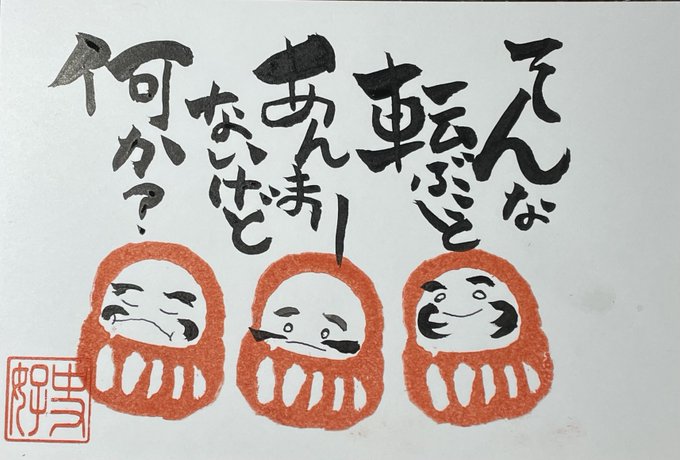 そんな
転ぶこと
あんまりー
ないけど
何か?